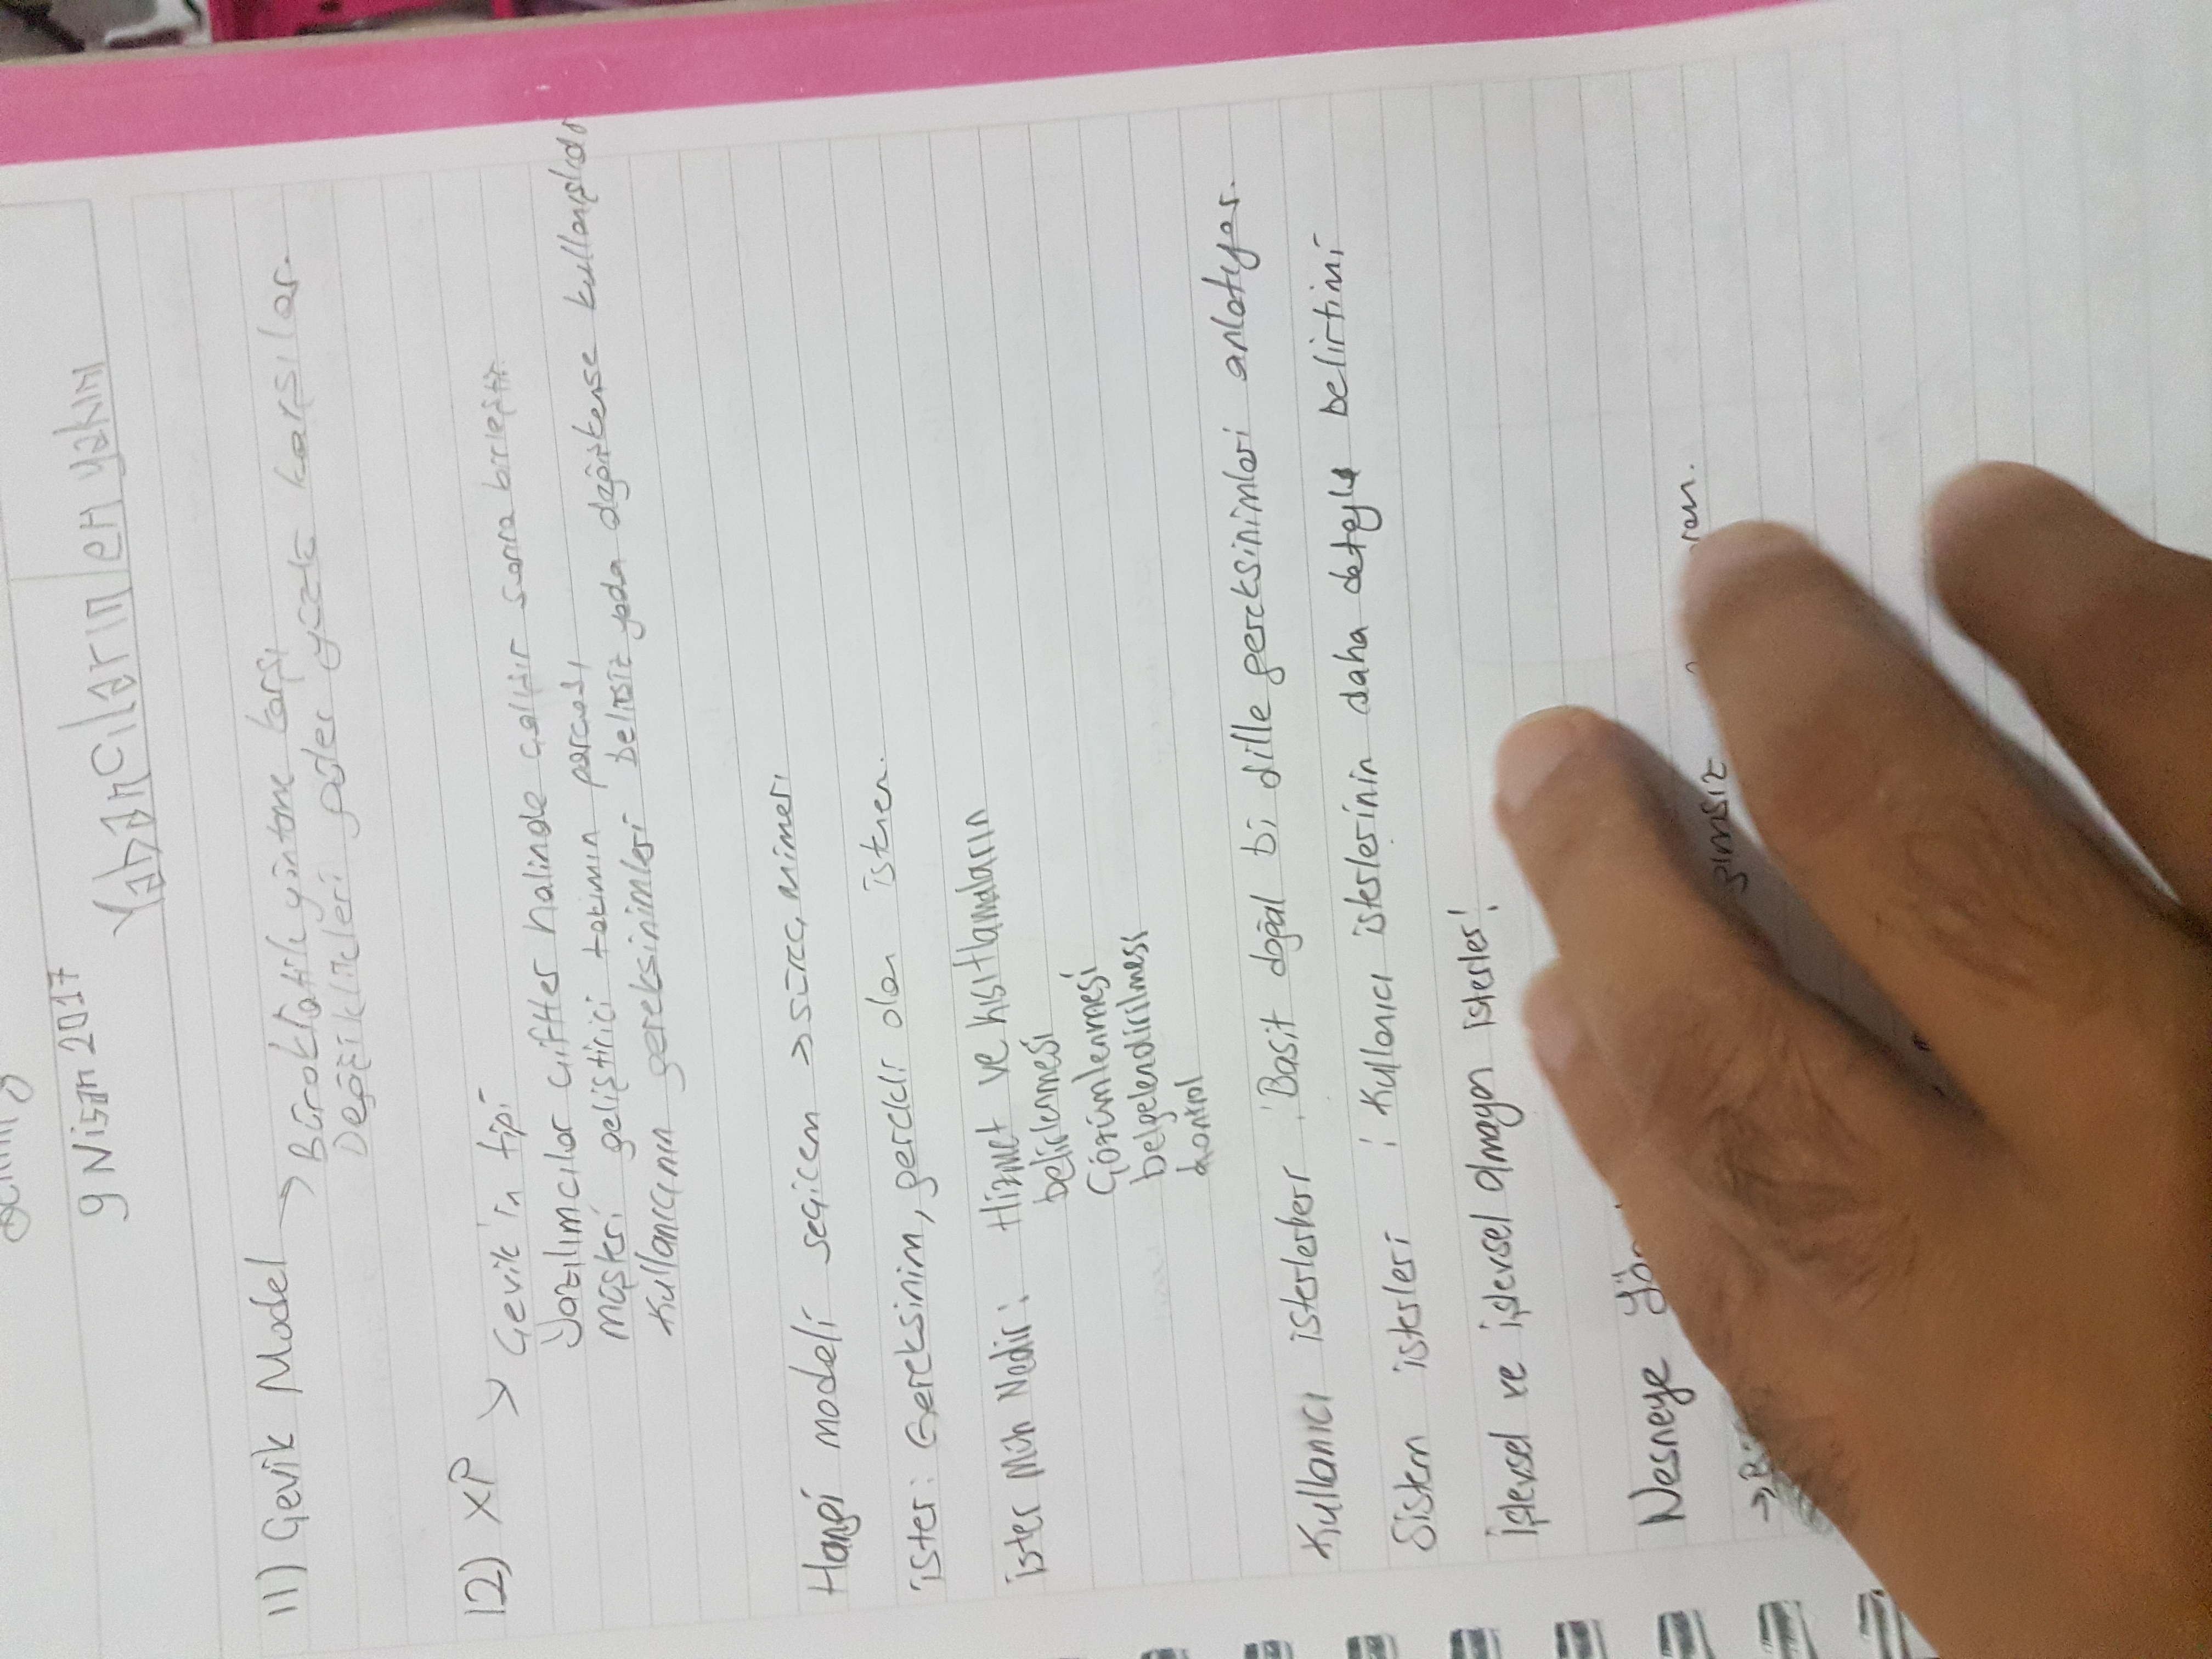 9 Nisan 2017
Yabancıların en yakını
11) Çevik Model → Bürokratik yöntme karşı
Değişiklikleri güler yüzle karşılar.
12) XP → Çevik'in tipi
Yazılımcılar çiftler halinde çalışır sonra birleştir
Müşteri geliştirici takımın parçası
Kullanıcının gereksinimleri belirsiz yada değişkense kullanışlıdır
Hangi modeli seçicem → süreç mimarı
ister: Gereksinim, gerekli olan istenen.
ister Müh Nedir: Hizmet ve kısıtlamaların
belirlenmesi
Çözümlenmesi
belgelendirilmesi
kontrol
Kullanıcı : Basit doğal bi dille gereksinimleri anlatıyor.
Sistem isterleri : Kullanıcı isterlerinin daha detaylı belirtimi
İşlevsel ve işlevsel olmayan isterler!
Nesneye